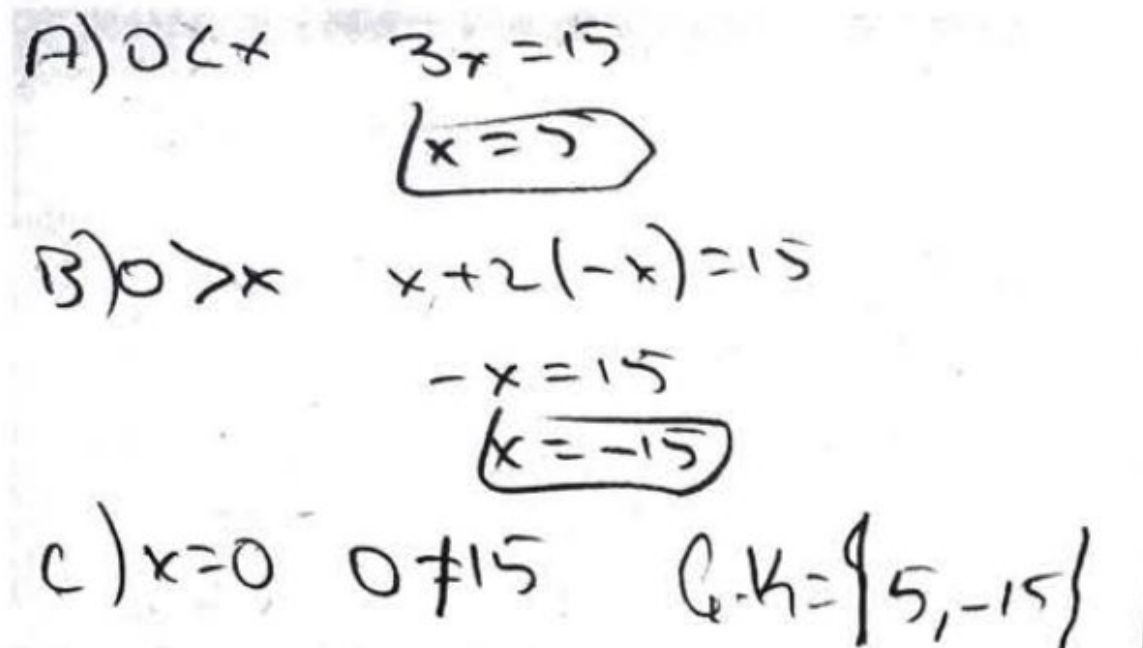 A) 0 < x 3x = 15
x = 5
B) 0 > x x + 2(-x) = 15
-x = 15
x = -15
C) x = 0 0 ≠ 15 Ç.K = {5, -15}